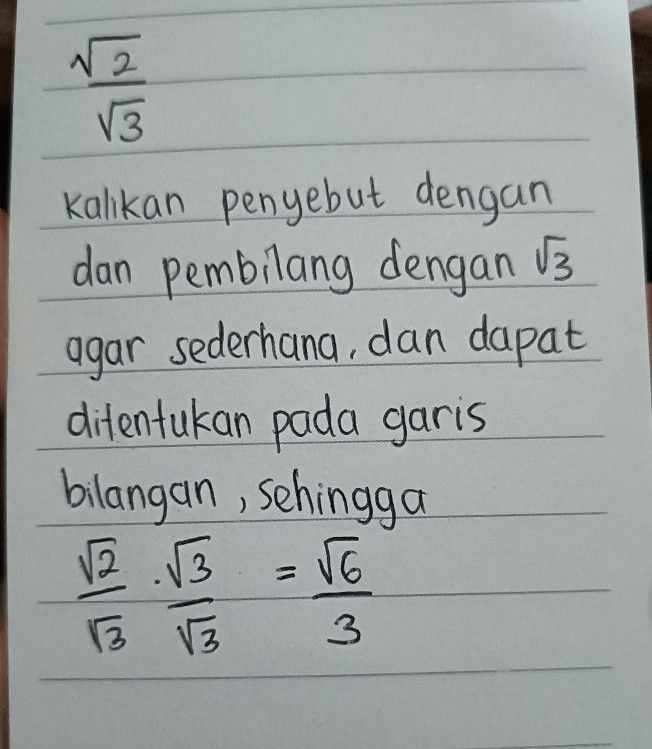 √2
√3
kalikan penyebut dengan
dan pembilang dengan √3
agar sederhana, dan dapat
ditentukan pada garis
bilangan, sehingga
√2/√3 . √3/√3 = √6/3